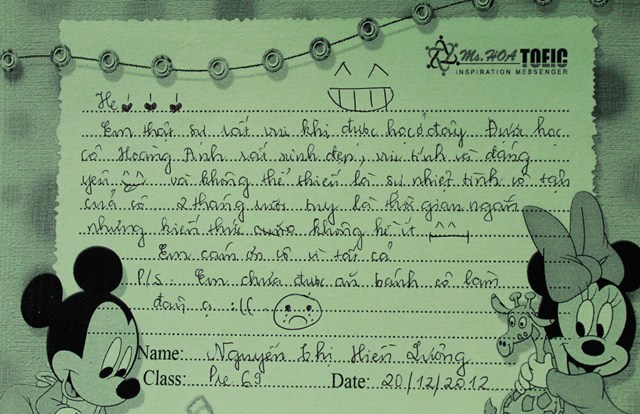 Ms. HOA TOEIC
INSPIRATION MESSENGER
Hẹ
Em thật sự rất vui khi được học ở đây. Được học
cô Hoàng Ánh rất xinh đẹp, vui tính và đáng
yêu và không thể thiếu là sự nhiệt tình vô tận
của cô 2 tháng vừa truy là thời gian ngắn
nhưng kiến thức không hề ít ^^
Em cảm ơn cô vì tất cả
P/s: Em chưa được ăn bánh cô làm
đâu ạ :((
Name: Nguyễn Thị Hiền Lương
Class: Pre 69 Date: 20/12/2012